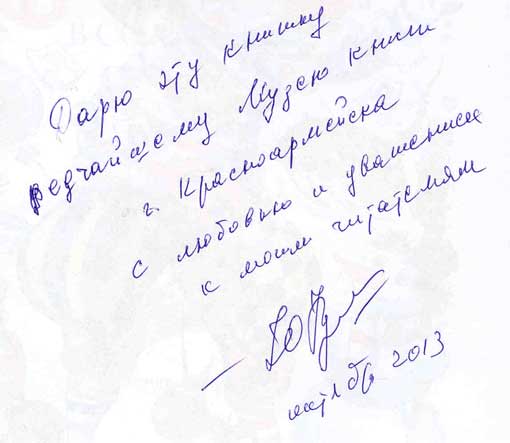 Дарю эту книжку
редчайшему Музею книги
г. Красноармейска
с любовью и уважением
к моим читателям
октябрь 2013